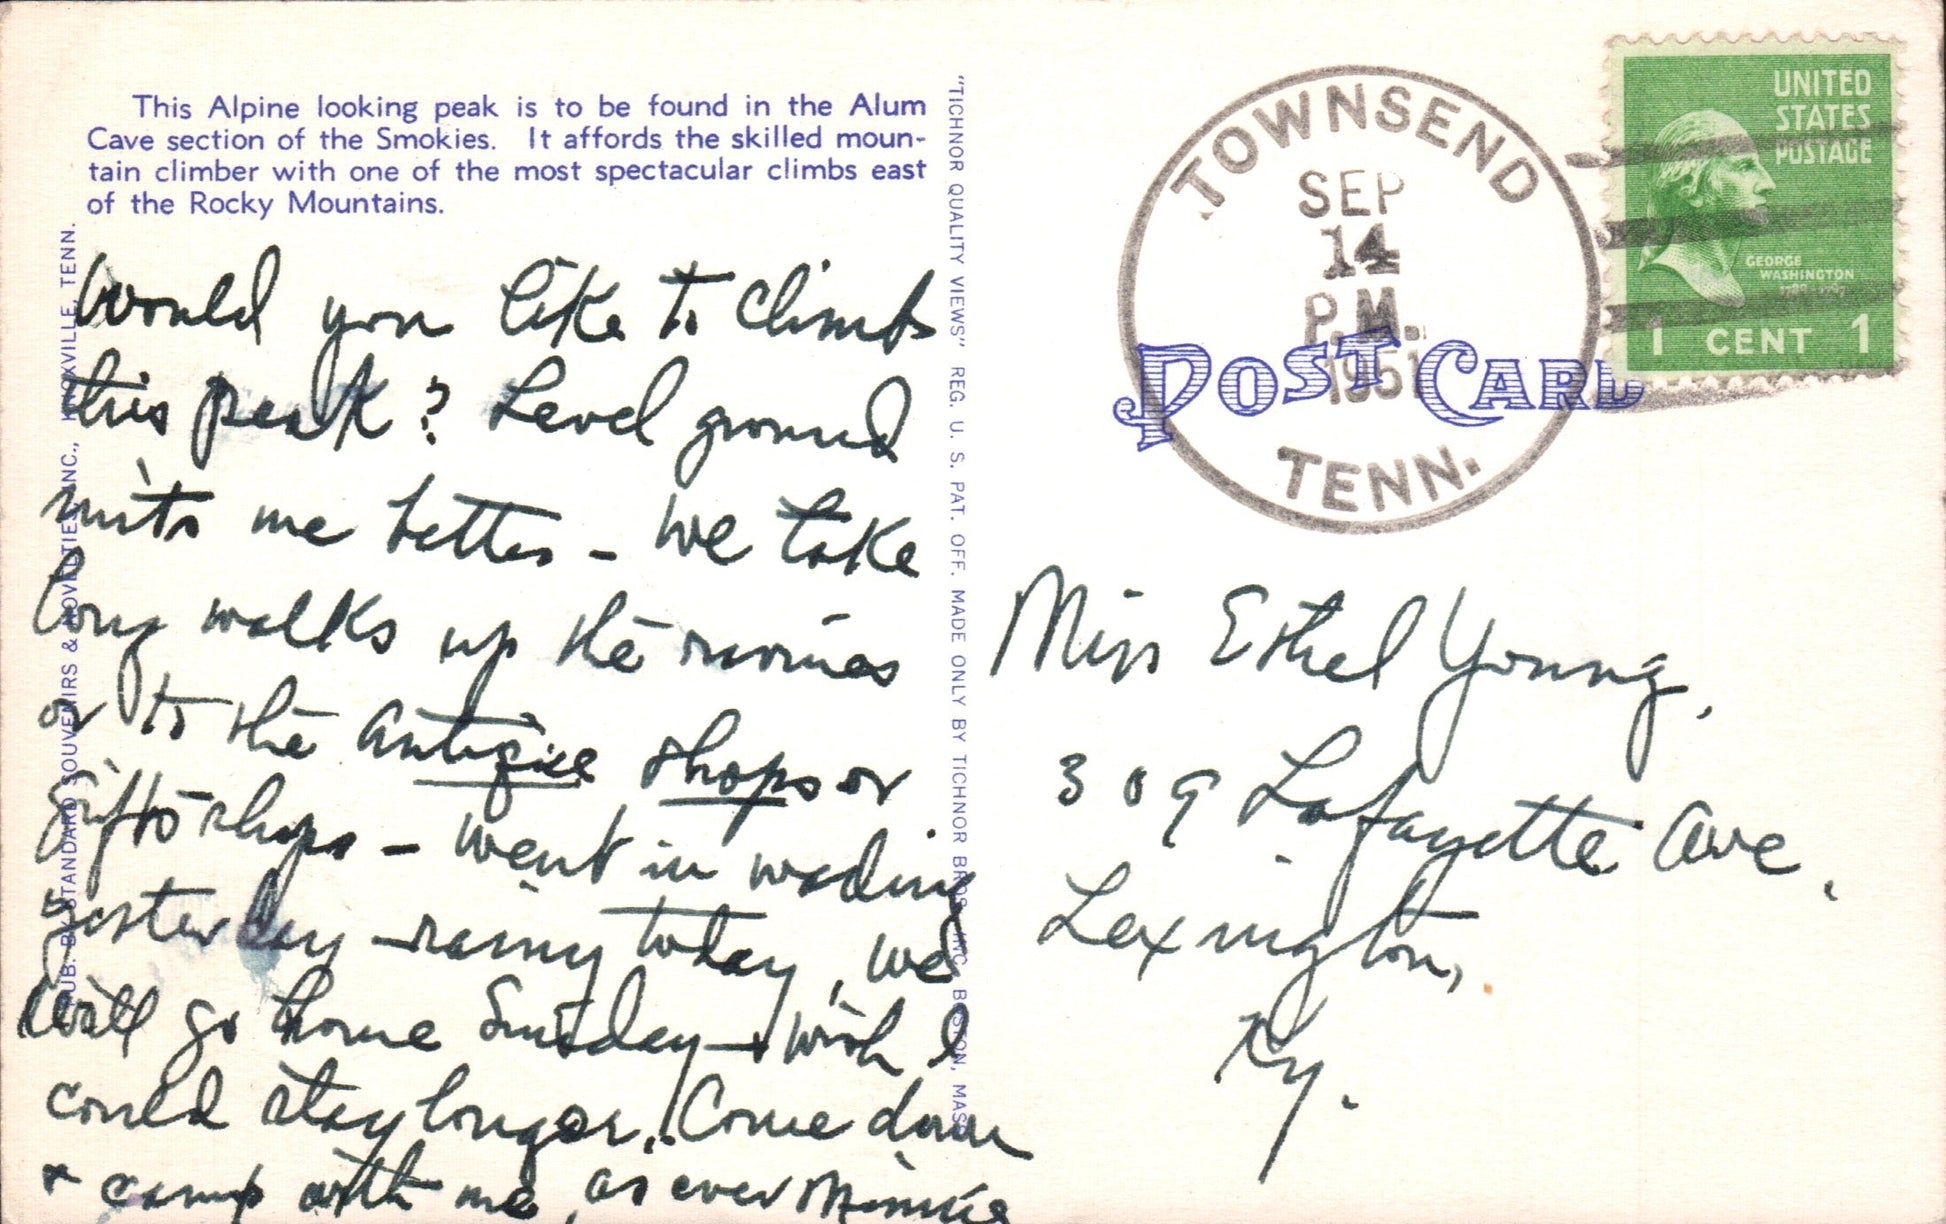 This Alpine looking peak is to be found in the Alum
Cave section of the Smokies. It affords the skilled moun-
tain climber with one of the most spectacular climbs east
of the Rocky Mountains.
Would you like to climb
this peak? Level ground
suits me better - We take
long walks up the ravines
or to the antique shops or
gift shops - went in wading
yesterday - rainy today, we
will go home Sunday - wish I
could stay longer. Come down
+ camp with me, as ever Minnie
PUB. BY STANDARD SOUVENIRS & NOVELTIES, INC., KNOXVILLE, TENN.
"TICHNOR QUALITY VIEWS" REG. U. S. PAT. OFF. MADE ONLY BY TICHNOR BROS., INC., BOSTON, MASS.
TOWNSEND
SEP
14
P.M.
1951
TENN.
POST CARD
UNITED
STATES
POSTAGE
GEORGE
WASHINGTON
1789-1797
1 CENT 1
Miss Ethel Young,
309 Lafayette Ave.
Lexington,
Ky.